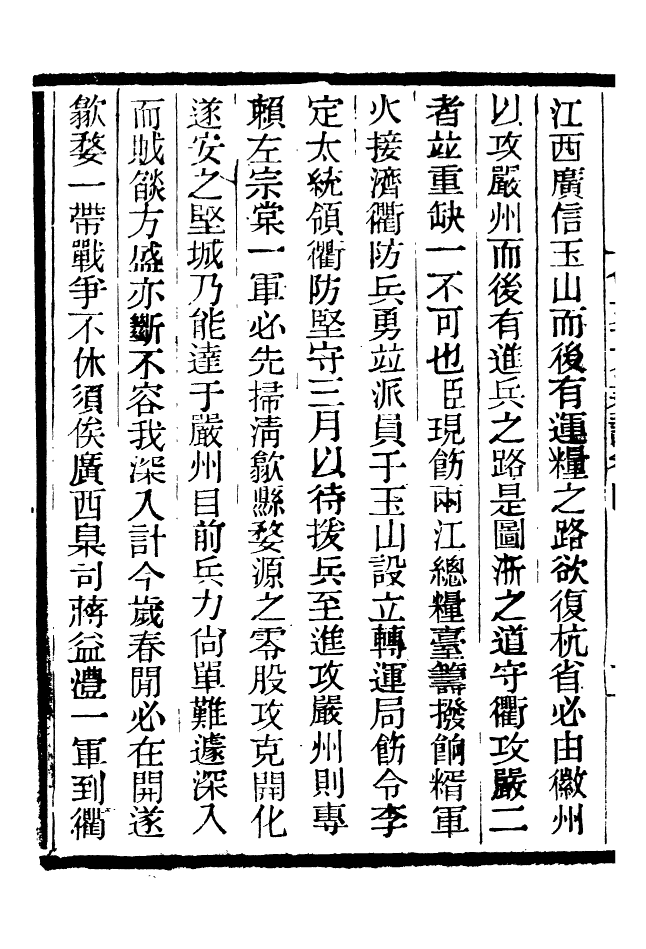 江西廣信玉山而後有運糧之路欲復杭省必由徽州
以攻嚴州而後有進兵之路是圖浙之道守衢攻嚴二
者並重缺一不可也臣現飭兩江總糧臺籌撥餉糈軍
火接濟衢防兵勇並派員于玉山設立轉運局飭令李
定太統領衢防堅守三月以待援兵至進攻嚴州則專
賴左宗棠一軍必先掃清歙縣婺源之零股攻克開化
遂安之堅城乃能達于嚴州目前兵力尙單難遽深入
而賊燄方盛亦斷不容我深入計今歲春閒必在開遂
歙婺一帶戰爭不休須俟廣西臬司蔣益澧一軍到衢